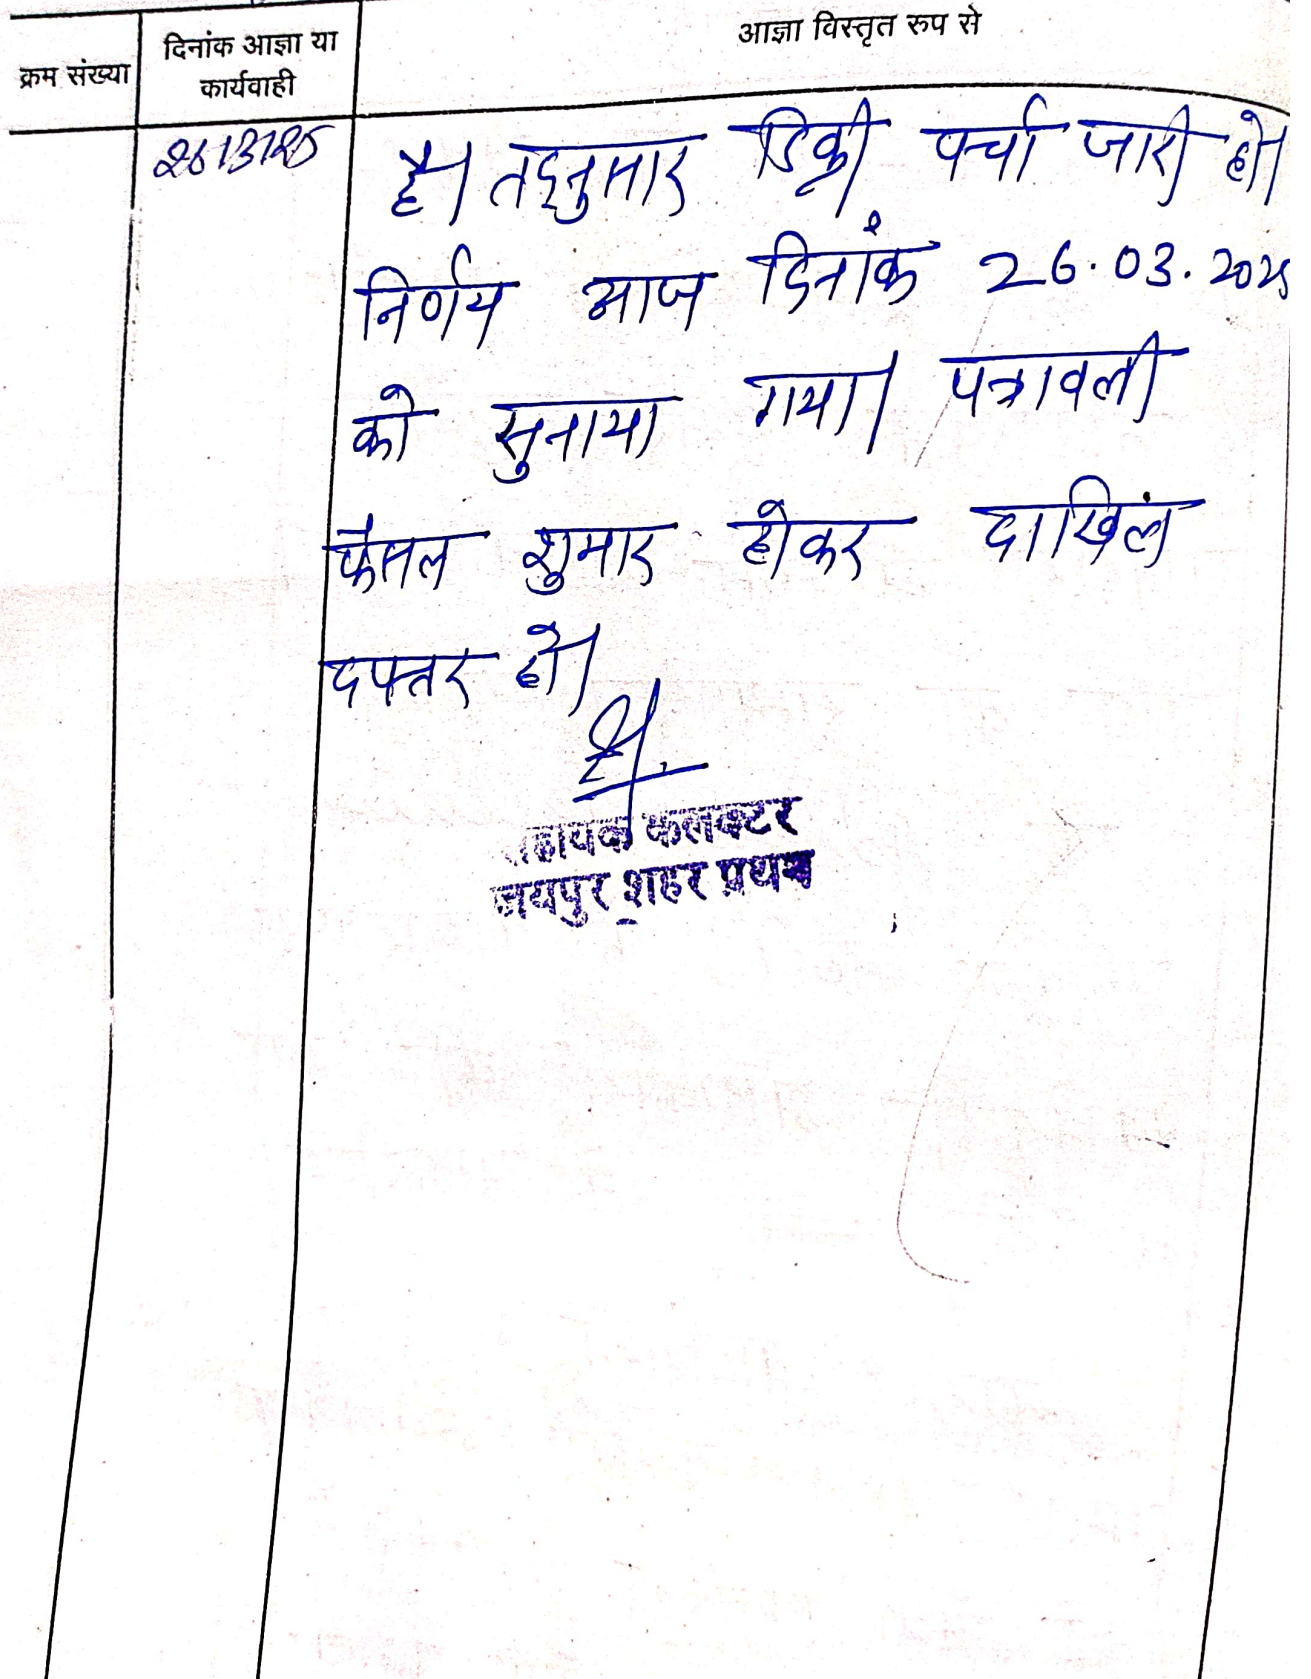 आज्ञा विस्तृत रुप से
क्रम संख्या
दिनांक आज्ञा या
कार्यवाही
26/3/25
है। तद्नुसार डिक्री पर्चा जारी हो।
निर्णय आज दिनांक 26.03.2025
को सुनाया गया। पत्रावली
फैसल शुमार होकर दाखिल
दफ्तर हो।
सहायक कलक्टर
जयपुर शहर प्रथम